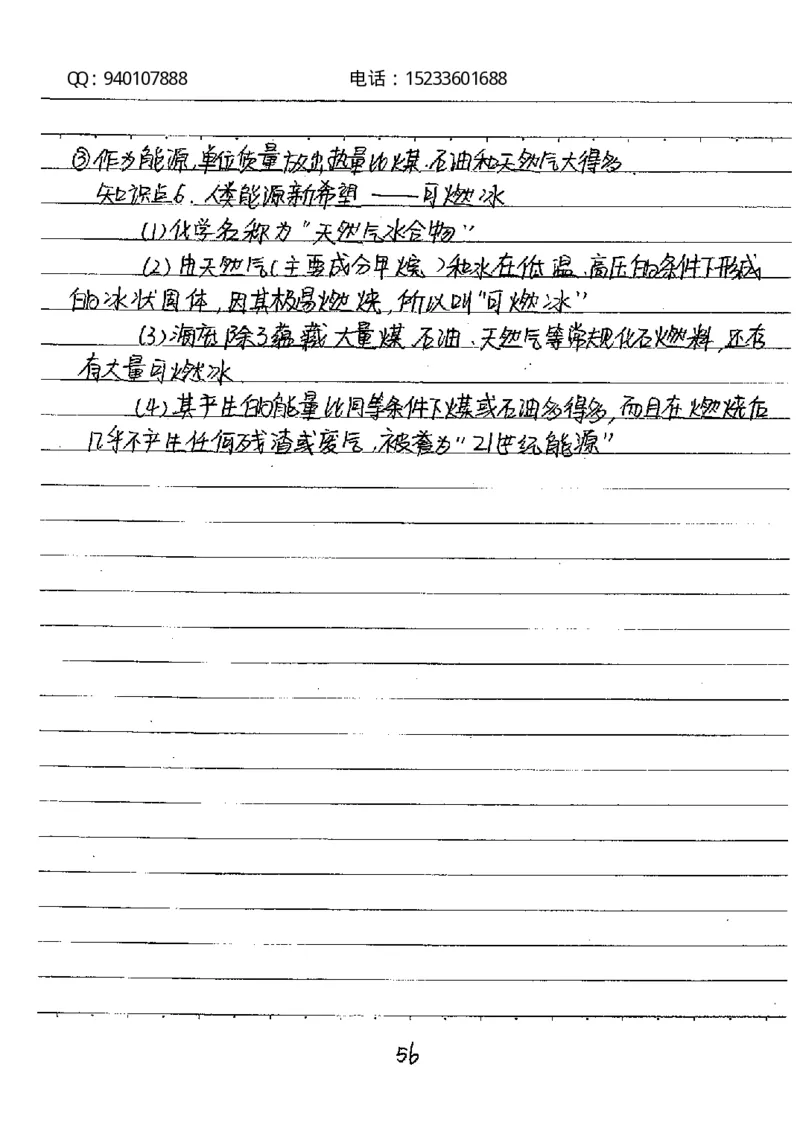 QQ：940107888 电话：15233601688
③作为能源,单位质量放出热量比煤、石油和天然气大得多
知识点6、人类能源新希望——可燃冰
(1)化学名称为"天然气水合物"
(2)由天然气(主要成分甲烷)和水在低温、高压的条件下形成
的冰状固体,因其极易燃烧,所以叫"可燃冰"
(3)海底除了蕴藏大量煤、石油、天然气等常规化石燃料,还存
有大量可燃冰
(4)其产生的能量比同等条件下煤或石油多得多,而且在燃烧后
几乎不产生任何残渣或废气,被誉为"21世纪能源"
56